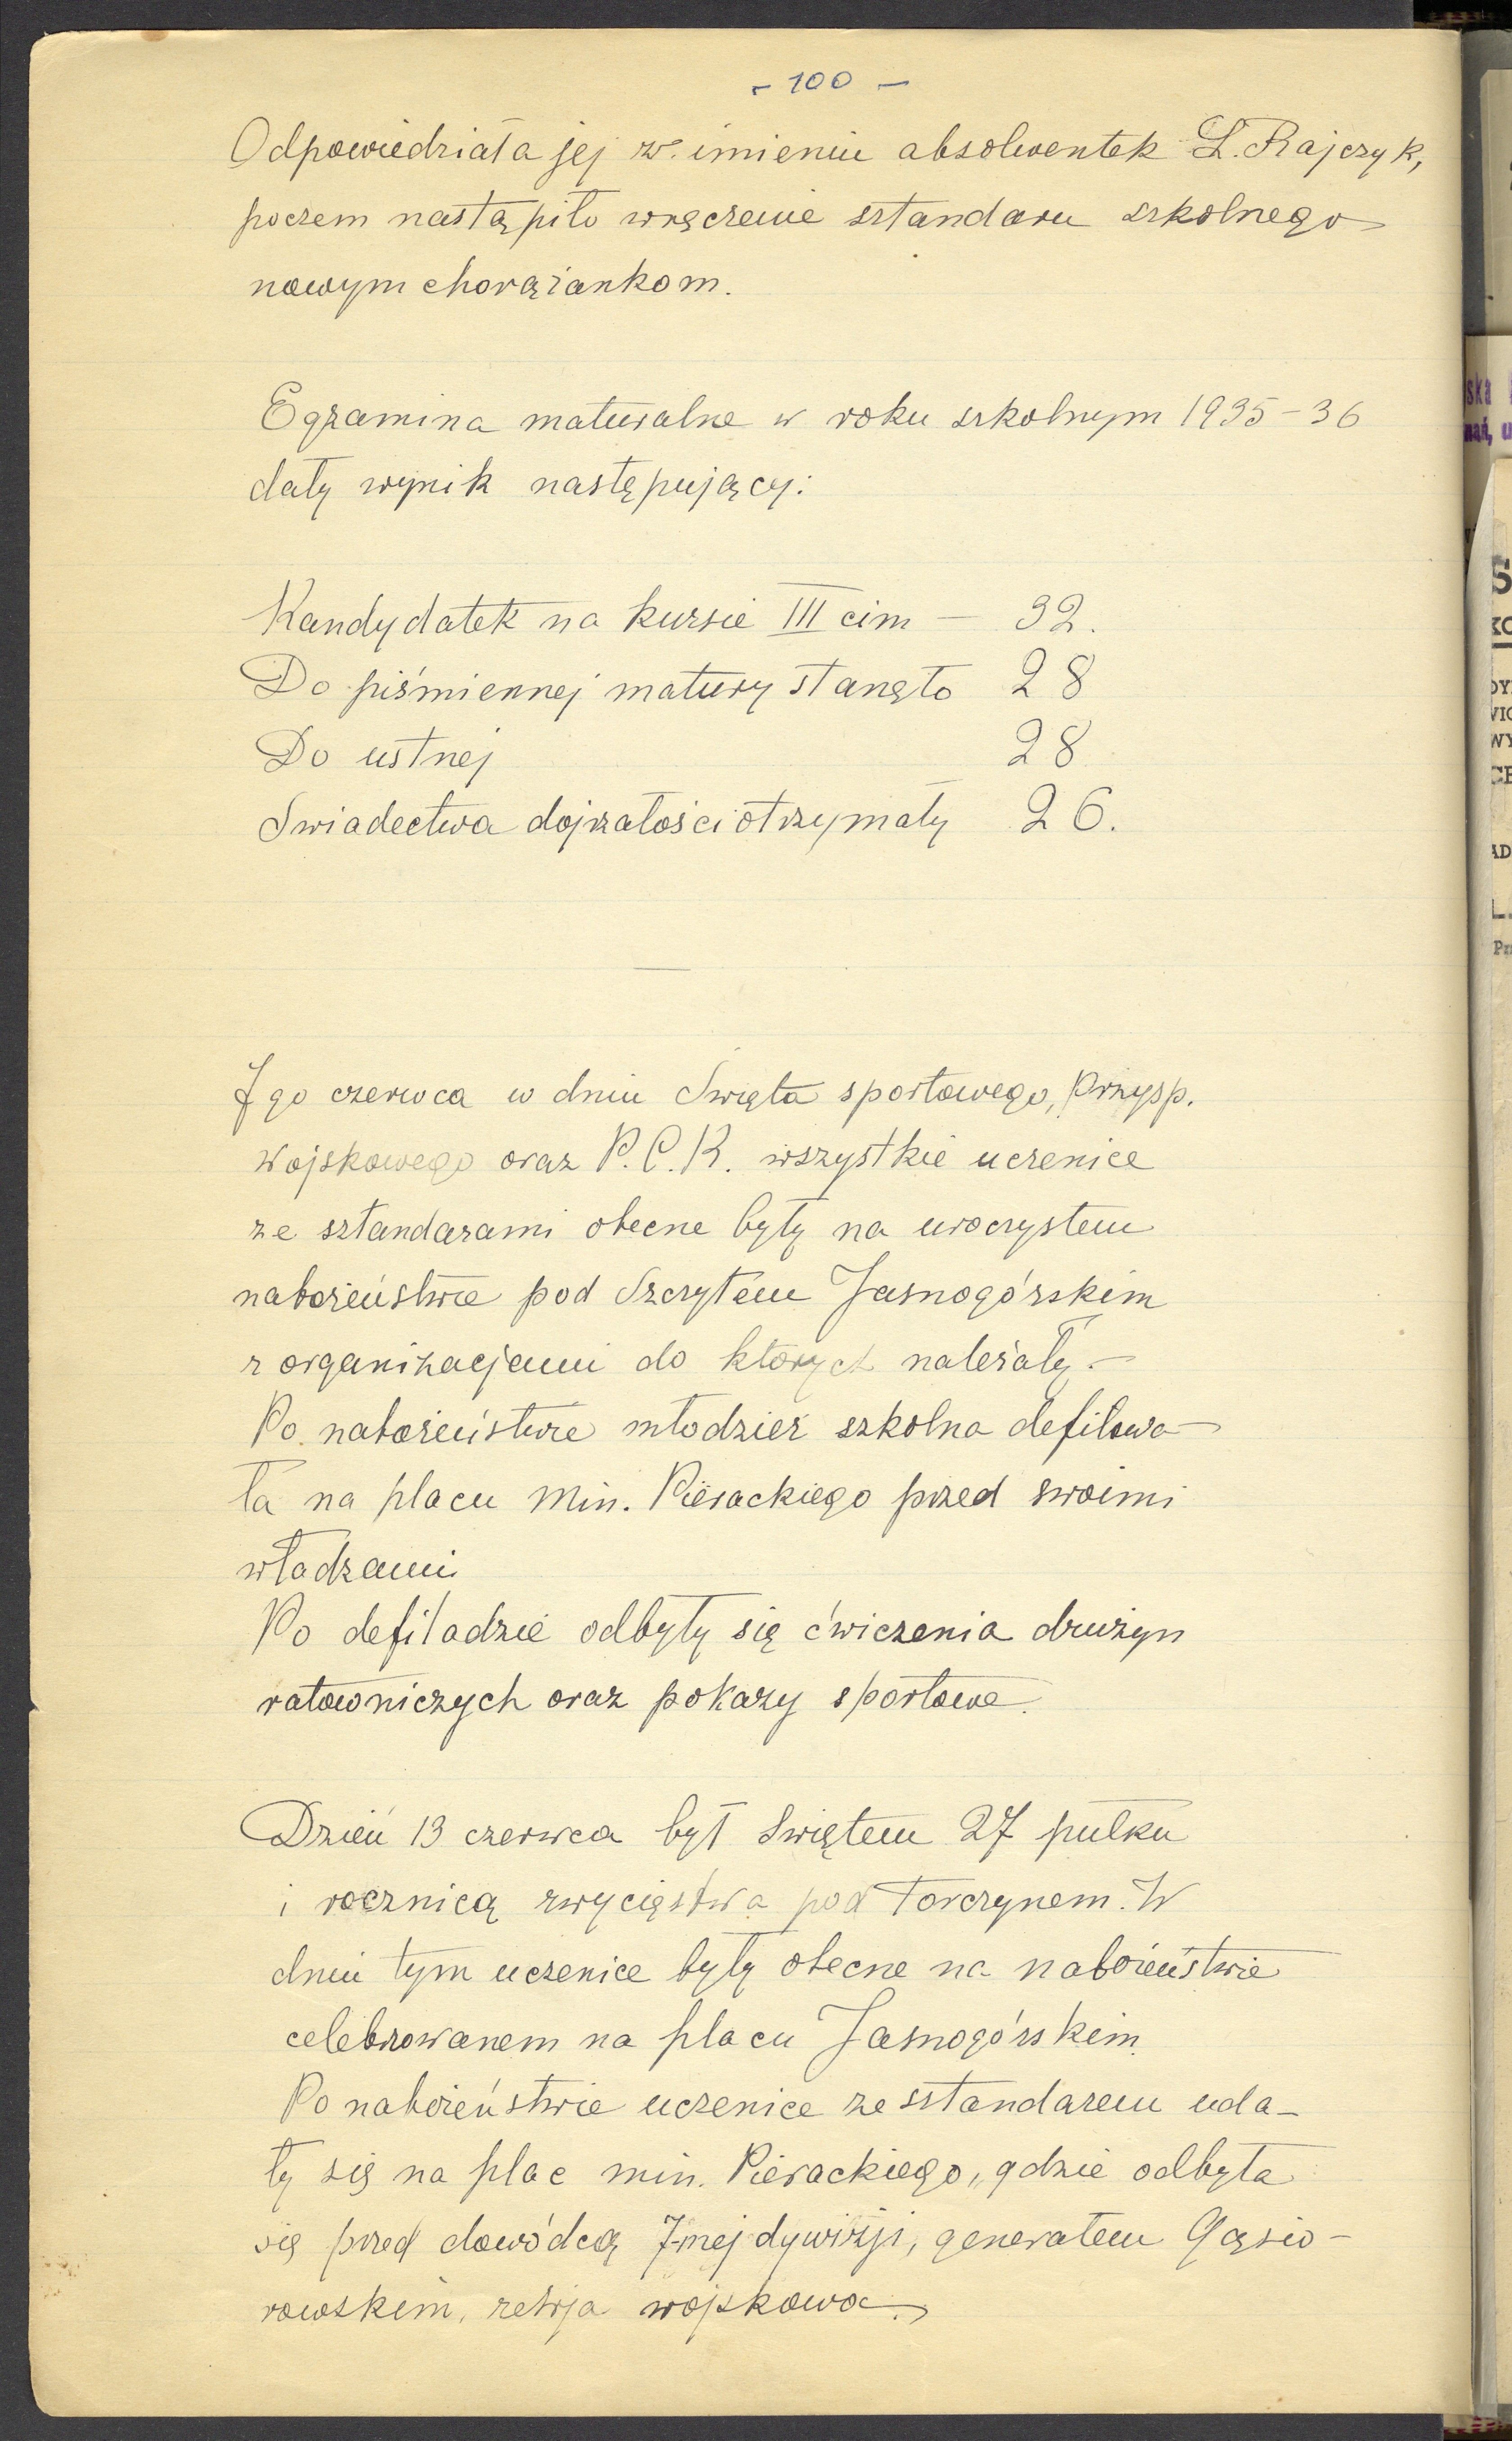 - 100 -
Odpowiedziała jej w imieniu absolwentek L. Rajczyk,
poczem nastąpiło wręczenie sztandaru szkolnego
nowym chorążankom.
Egzamina maturalne w roku szkolnym 1935-36
dały wynik następujący:
Kandydatek na kursie III cim - 32.
Do piśmiennej matury stanęło 28
Do ustnej 28
Swiadectwa dojrzałości otrzymały 26.
7go czerwca w dniu Święta sportowego, Przysp.
Wojskowego oraz P.C.K. wszystkie uczenice
ze sztandarami obecne były na uroczystem
nabożeństwie pod Szczytem Jasnogórskim
z organizacjami do których należały. -
Po nabożeństwie młodzież szkolna defilowa-
ła na placu Min. Pierackiego przed swoimi
władzami
Po defiladzie odbyły się ćwiczenia drużyn
ratowniczych oraz pokazy sportowe.
Dzień 13 czerwca był Świętem 27 pułku
i rocznicą zwycięstwa pod Torczynem. W
dniu tym uczenice były obecne na nabożeństwie
celebrowanem na placu Jasnogórskim.
Po nabożeństwie uczenice ze sztandarem uda-
ły się na plac min. Pierackiego, gdzie odbyła
się przed dowódcą 7-mej dywizji, generałem Gąsio-
rowskim, rewja wojskowa.
ska
S
KO
DY
WY
CE
AD
L.